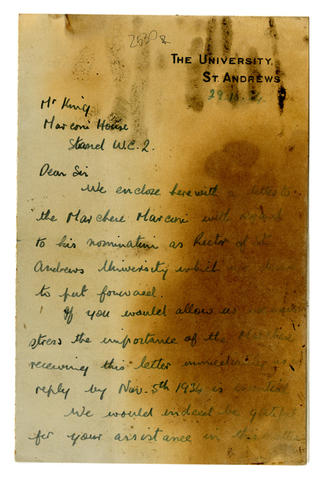 2530 &
THE UNIVERSITY,
ST. ANDREWS
Mr King
Marconi House
Strand W.C. 2.
Dear Sir
We enclose herewith a letter to
the Marchese Marconi with regard
to his nomination as Rector of St
Andrews University which
to put forward.
If you would allow us
stress the importance of the Marchese
receiving this letter immediately as a
reply by Nov. 5th 1934 is essential
We would indeed be grateful
for your assistance in this matter